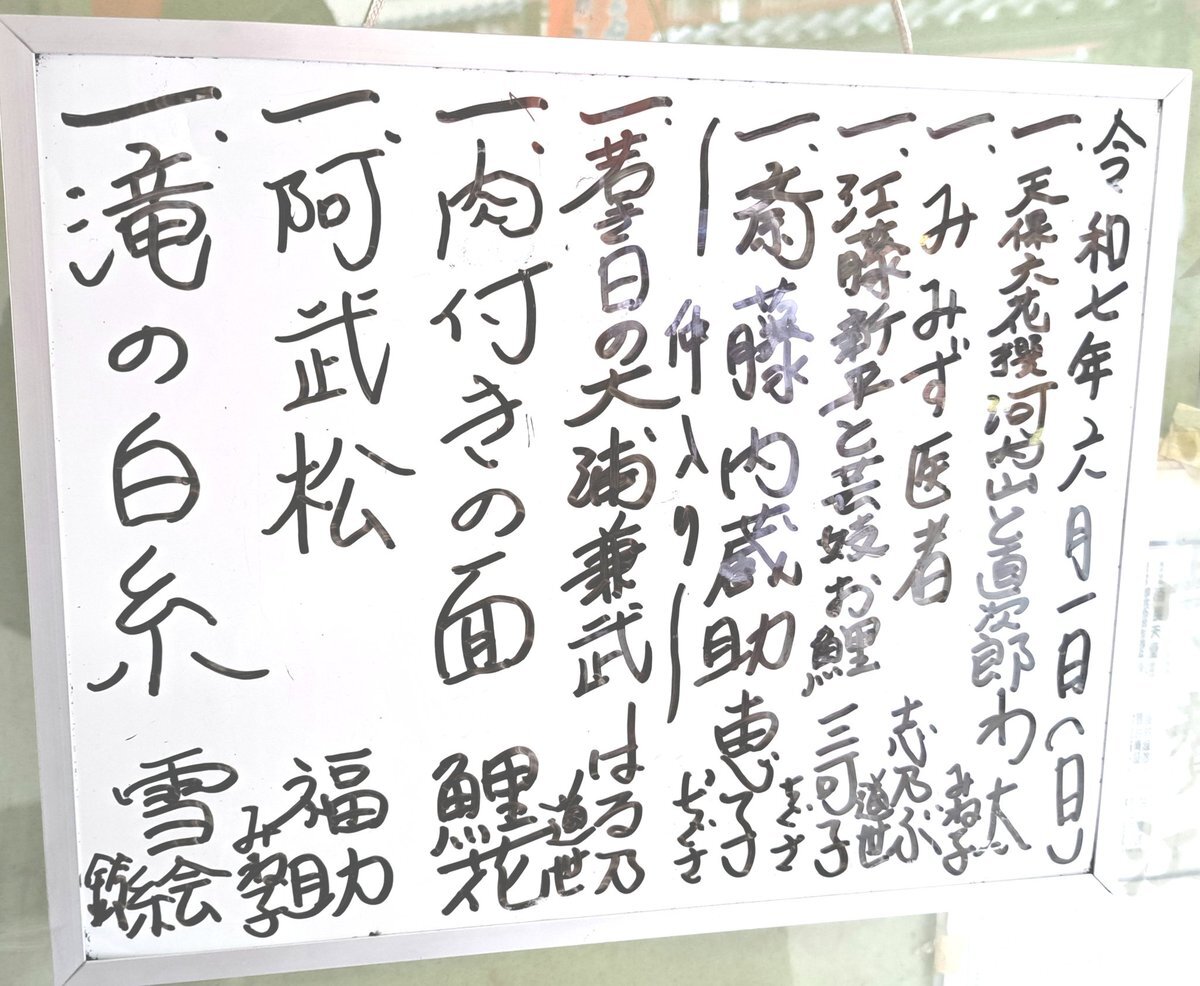 令和七年六月一日(日)
一、天保六花撰河内山と直次郎 わ太
みね子
一、みみず医者 志乃ぶ
道世
一、江藤新平と芸妓お鯉 三可子
一、斎藤内蔵助 恵子
ー仲入りー
一、若き日の大浦兼武 はる乃
道世
一、肉付きの面 鯉花
一、阿武松 福助
み子
一、滝の白糸 雪絵